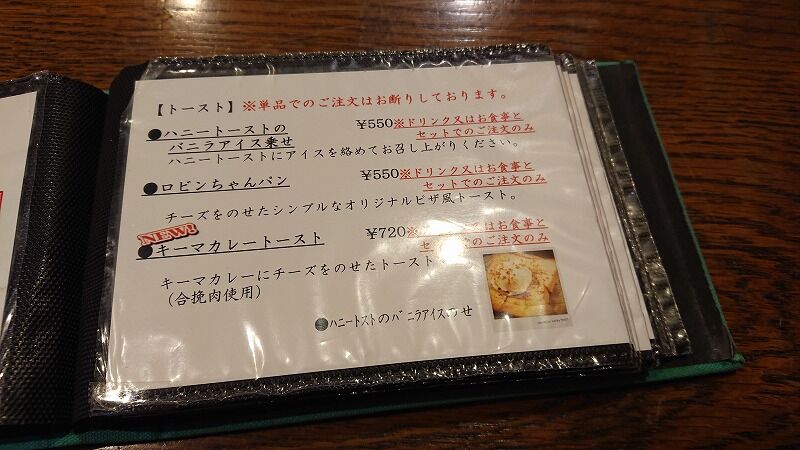 【トースト】※単品でのご注文はお断りしております。
●ハニートーストの ¥550※ドリンク又はお食事と
バニラアイス乗せ セットでのご注文のみ
ハニートーストにアイスを絡めてお召し上がりください。
●ロビンちゃんパン ¥550※ドリンク又はお食事と
セットでのご注文のみ
チーズをのせたシンプルなオリジナルピザ風トースト。
NEW!
●キーマカレートースト ¥720※ドリンク又はお食事と
セットでのご注文のみ
キーマカレーにチーズをのせたトースト
(合挽肉使用)
●ハニートストのバニラアイスのせ